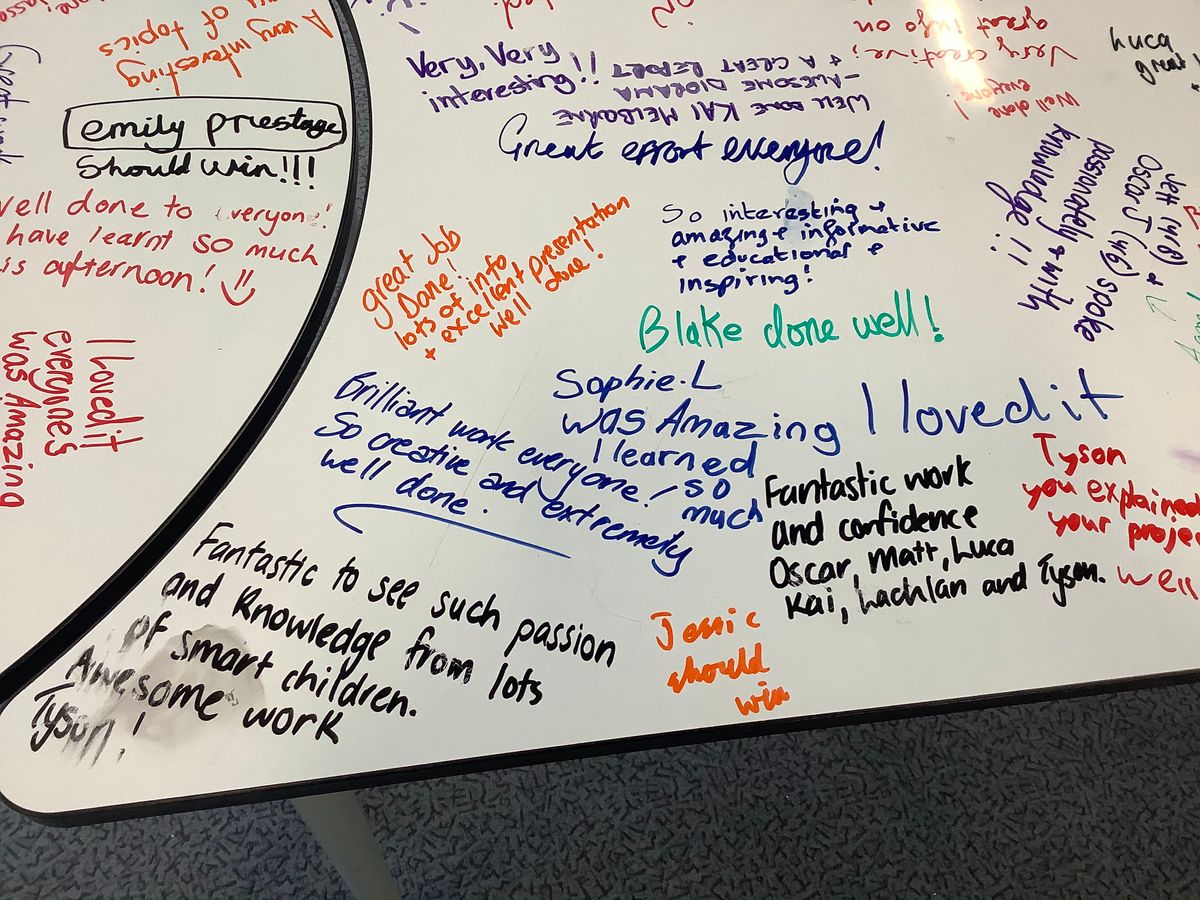 A very interesting
of topics
emily priestage
Should win!!!
well done to everyone!
have learnt so much
is afternoon!
I loved it
everyones
was Amazing
Very, Very
interesting!!
WELL DONE KAI MELBORNE
-AWESOME DIORAMA
+ A GREAT REPORT
Great effort everyone!
Very creative,
great info on
Well done
everyone!
Luca
great
Jeff (4B) +
Oscar J (4/6) spoke
passionately + with
knowledge!!!
great Job
Done!
lots of info
+ excellent presentation
well done!
So interesting +
amazing + informative
+ educational +
inspiring!
Blake done well!
Sophie.L
was Amazing
I learned
so
much
I loved it
Brilliant work everyone!
So creative and extremely
well done.
Fantastic work
and confidence
Oscar, Matt, Luca
Kai, Lachlan and Tyson.
Tyson
you explained
your projec
well
Fantastic to see such passion
and Knowledge from lots
of smart children.
Awesome work
Tyson!
Jessic
should
win